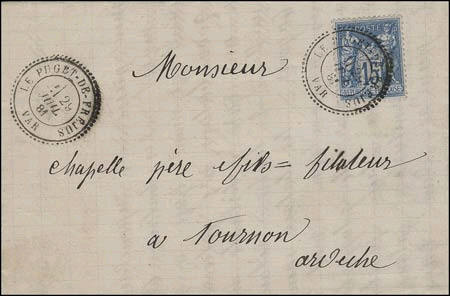 LE PUGET-DE-FREJUS
23
JUIL
84
VAR
POSTE
15
Monsieur
chapelle père & fils = filateur
a Tournon
ardeche